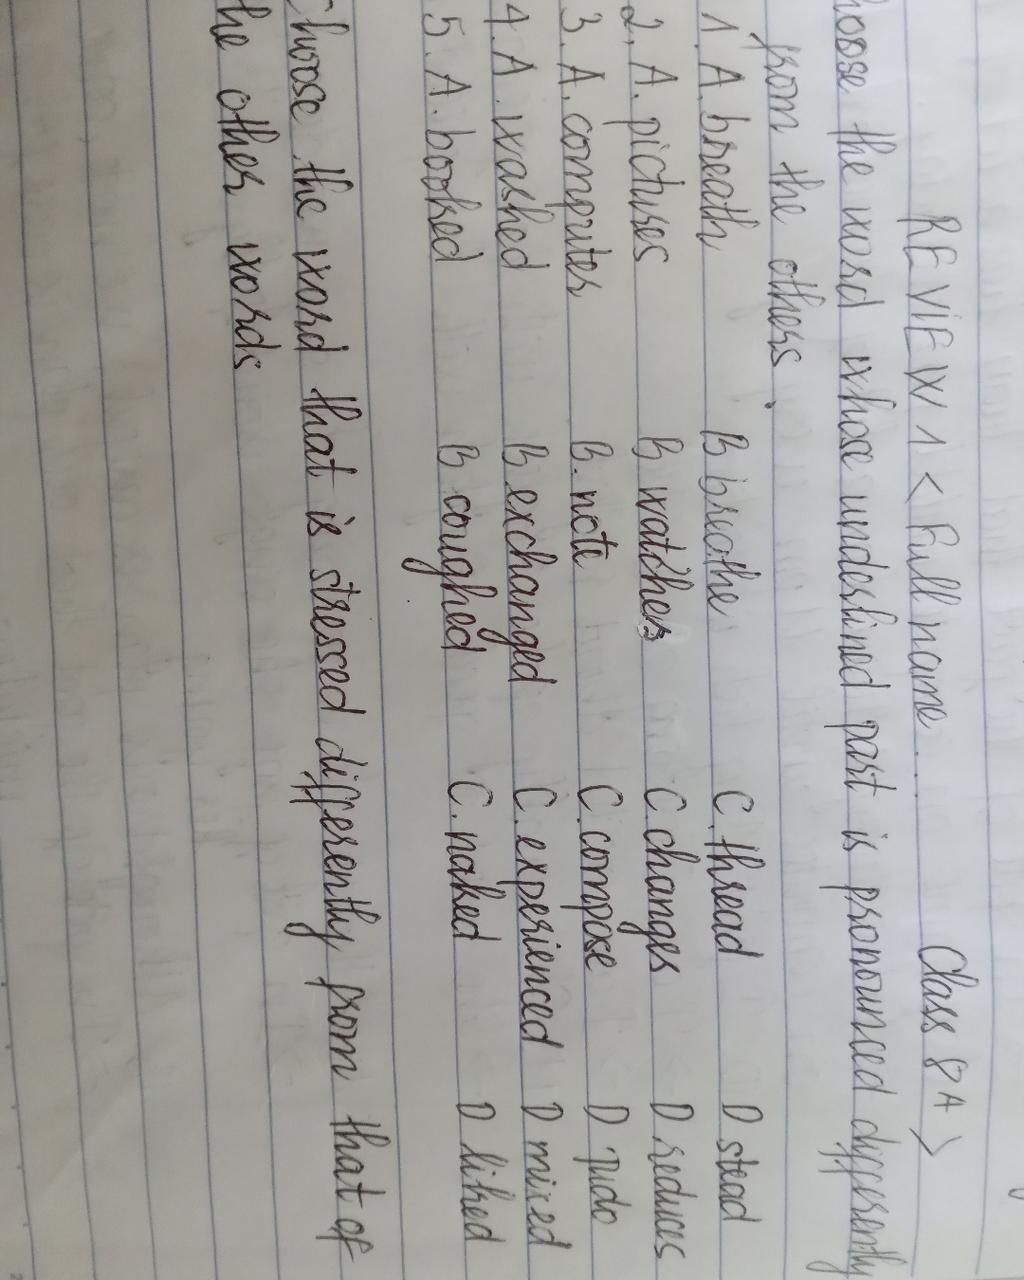 REVIEW 1 < Full name..... Class 8A >
hoose the word whose underlined part is pronounced differently
from the others.
1. A. breath B breathe C. thread D stead
2. A. pictures B watches C changes D. reduces
3. A. computer B. note C. compose D
4. A. washed B exchanged C. experienced D mixed
5. A. booked B coughed C. naked D liked
Choose the word that is stressed differently from that of
the other words